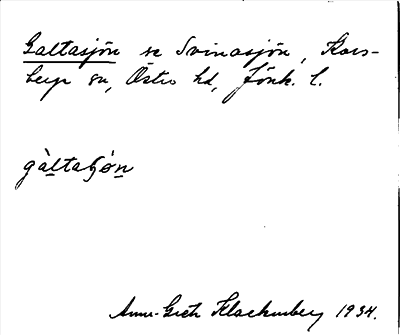 Galtasjön se Svinasjön, Kors-
berga sn, Östra hd, Jönk. l.
gàltaʃö́n
Anna-Greta Klackenberg 1934.